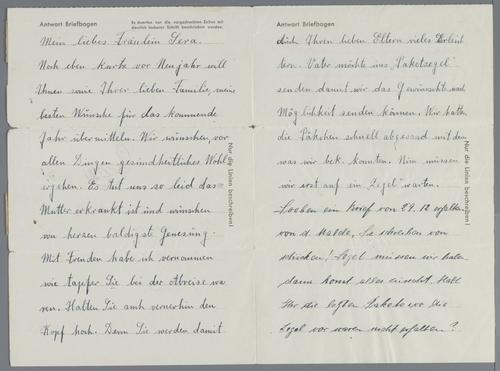 Antwort Briefbogen
Es duerfen nur die vorgedruckten Zeilen mit deutlich lesbarer Schrift beschrieben werden.
Mein liebes Fräulein Sera.
Noch eben kurz vor Neujahr will
Ihnen sowie Ihrer lieben Familie, meine
besten Wünsche für das kommende
Jahr übermitteln. Wir wünschen, vor
allen Dingen gesundheitliches Wohl-
ergehen. Es tut uns so leid das
Mutter erkrankt ist und wünschen
von herzen baldigste Genesung.
Mit Freuden habe ich vernommen
wie tapfer Sie bei der Abreise wa-
ren. Halten Sie auch weiterhin den
Kopf hoch. Denn Sie werden damit
Nur die Linien beschreiben!
Antwort Briefbogen
auch Ihren lieben Eltern vieles Erleich
tern. Vater möchte uns Paketsegel
senden damit wir das Gewünschte nach
Möglichkeit senden können. Wir hatten
die Päkchen schnell abgesand mit dem
was wir bek. konnten. Nun müssen
wir erst auf ein Zegel warten.
Soeben ein Brief von 29.12 erhalten
von
schreiben von
Zegel müssen wir haben
dann komt alles
Habt
Ihr die letzten Pakete wo die
Zegel vor waren nicht erhalten?
Nur die Linien beschreiben!